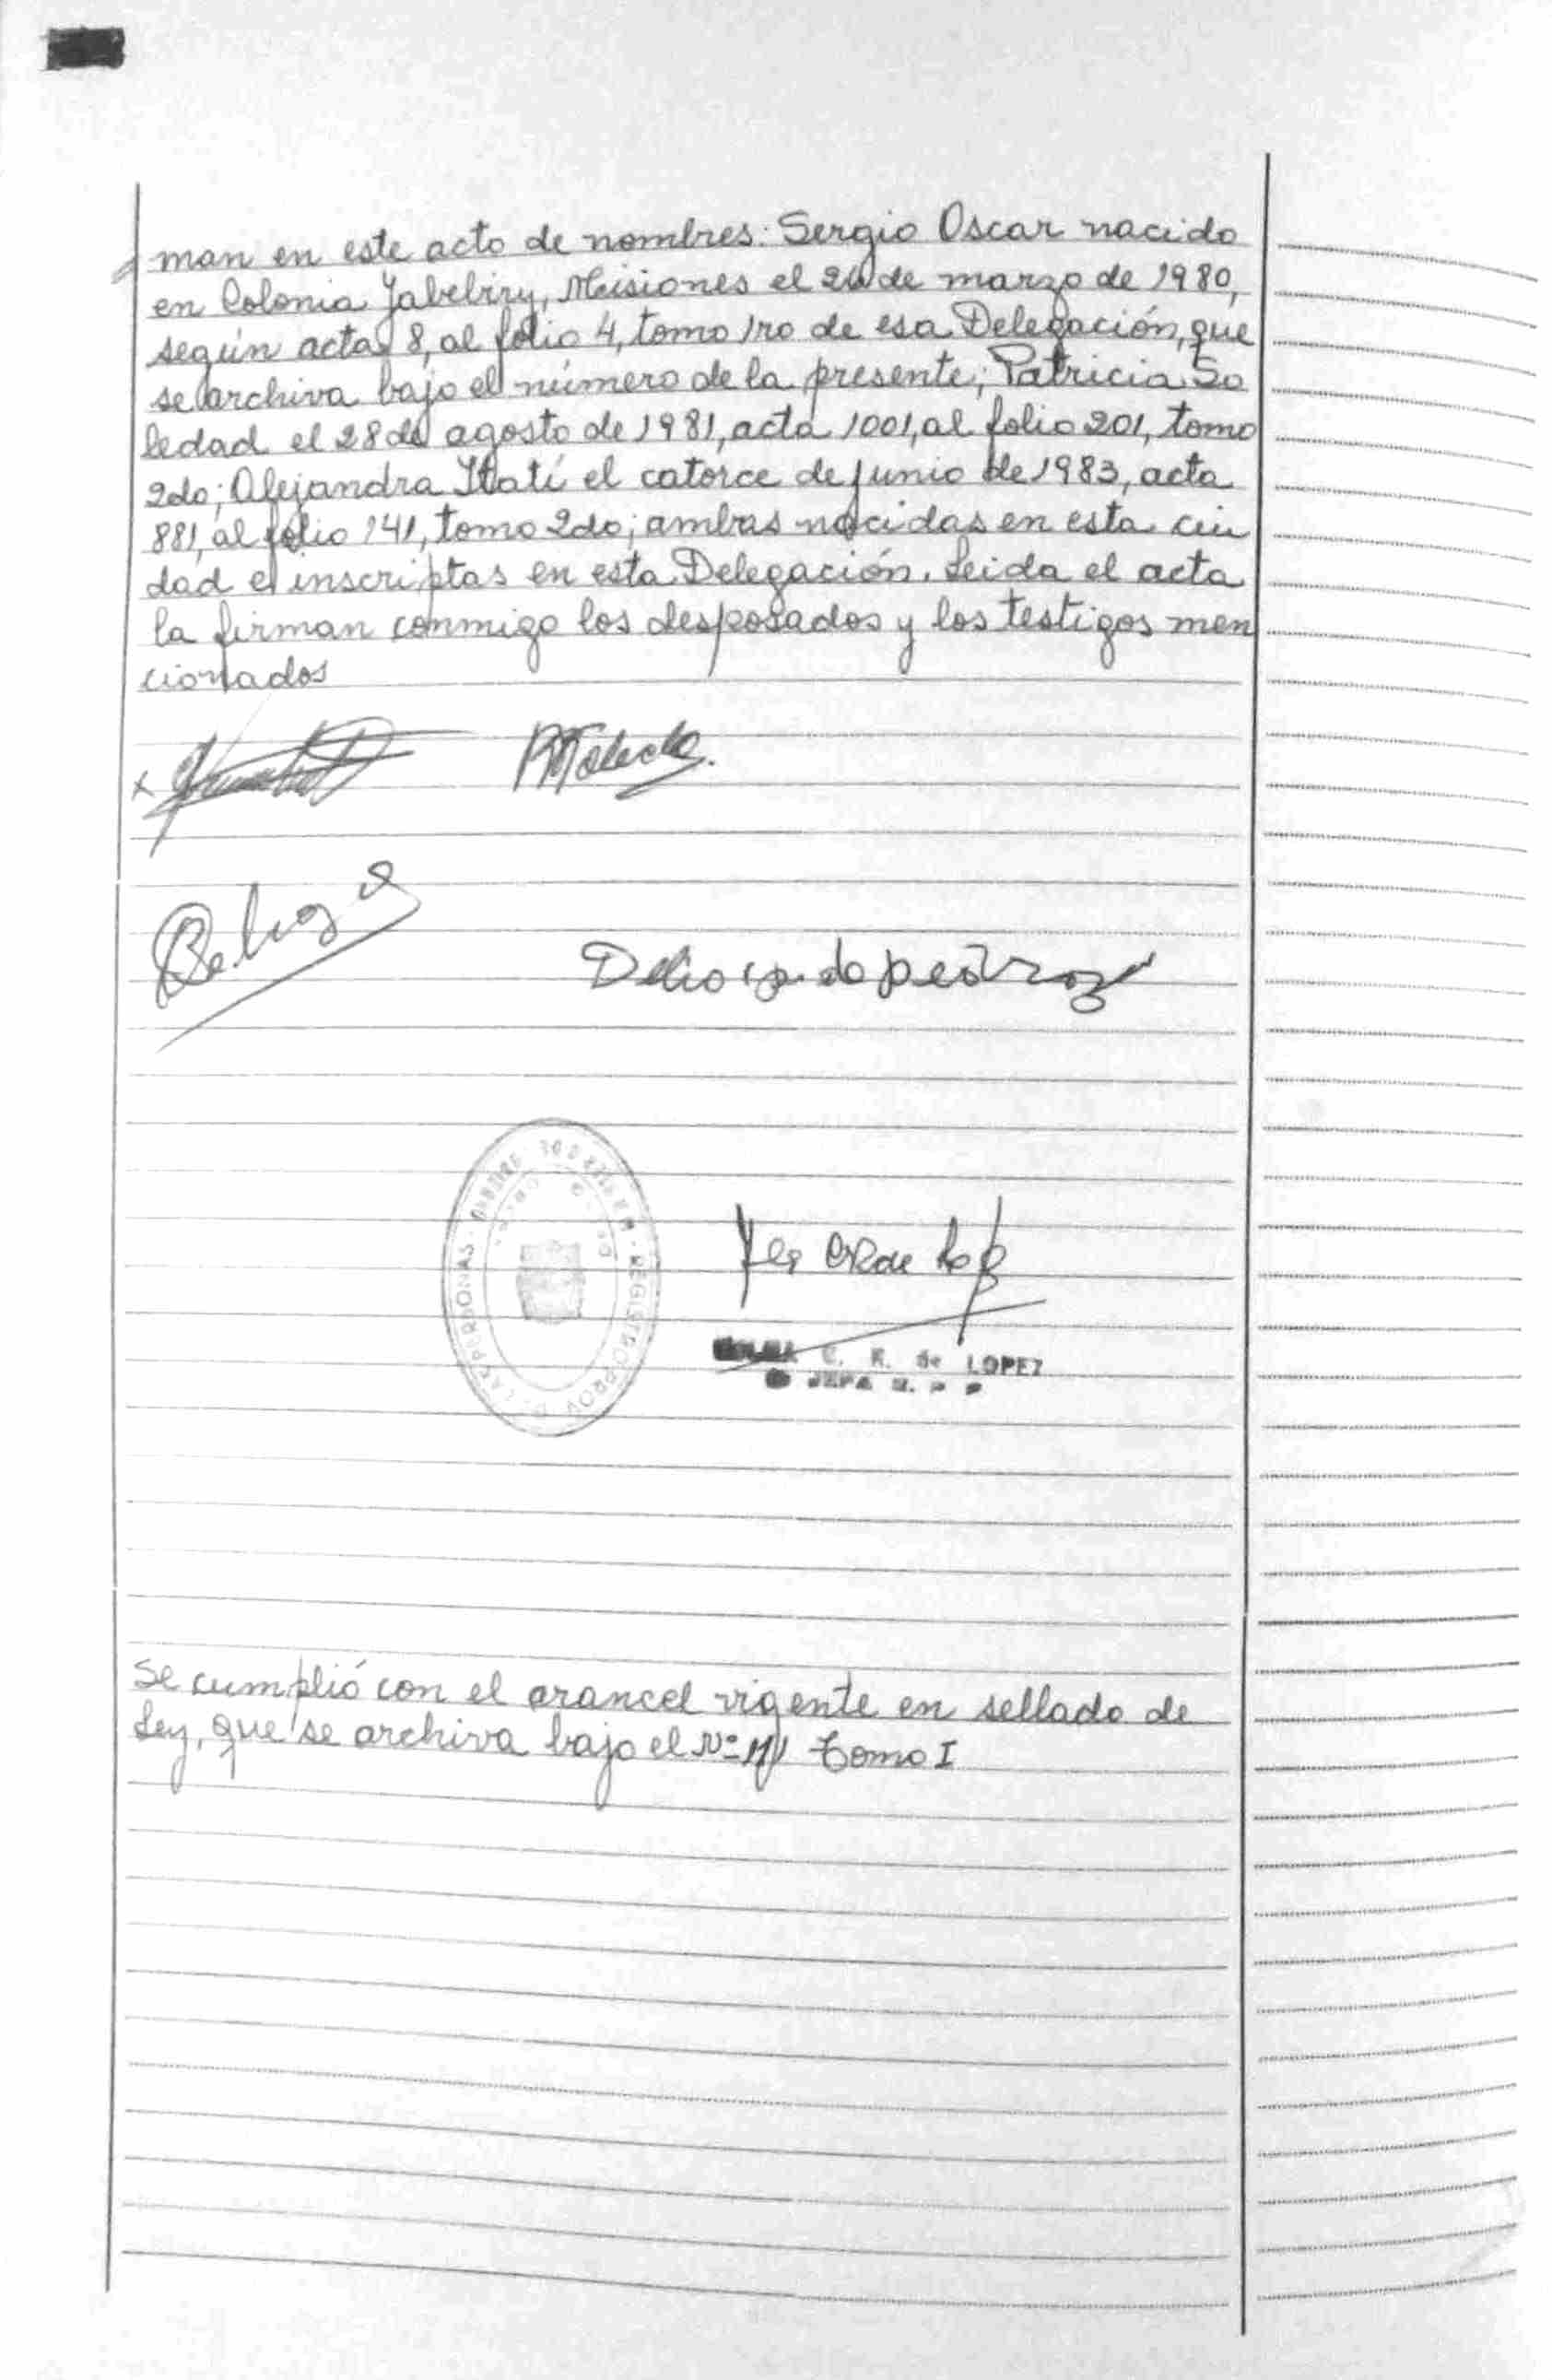 man en este acto de nombres: Sergio Oscar nacido
en Colonia Yabebiry, Misiones el 26 de marzo de 1980,
según acta 8, al folio 4, tomo 1ro de esa Delegación, que
se archiva bajo el número de la presente; Patricia So
ledad el 28 de agosto de 1981, acta 1001, al folio 201, tomo
2do; Alejandra Itatí el catorce de junio de 1983, acta
881, al folio 141, tomo 2do; ambas nacidas en esta ciu
dad e inscriptas en esta Delegación. Leida el acta
la firman conmigo los desposados y los testigos men
cionados
Delio
REGISTRO PROV. DE LAS PERSONAS
C. R. de LOPEZ
JEFA
Se cumplió con el arancel vigente en sellado de
Ley, que se archiva bajo el Nº Tomo I